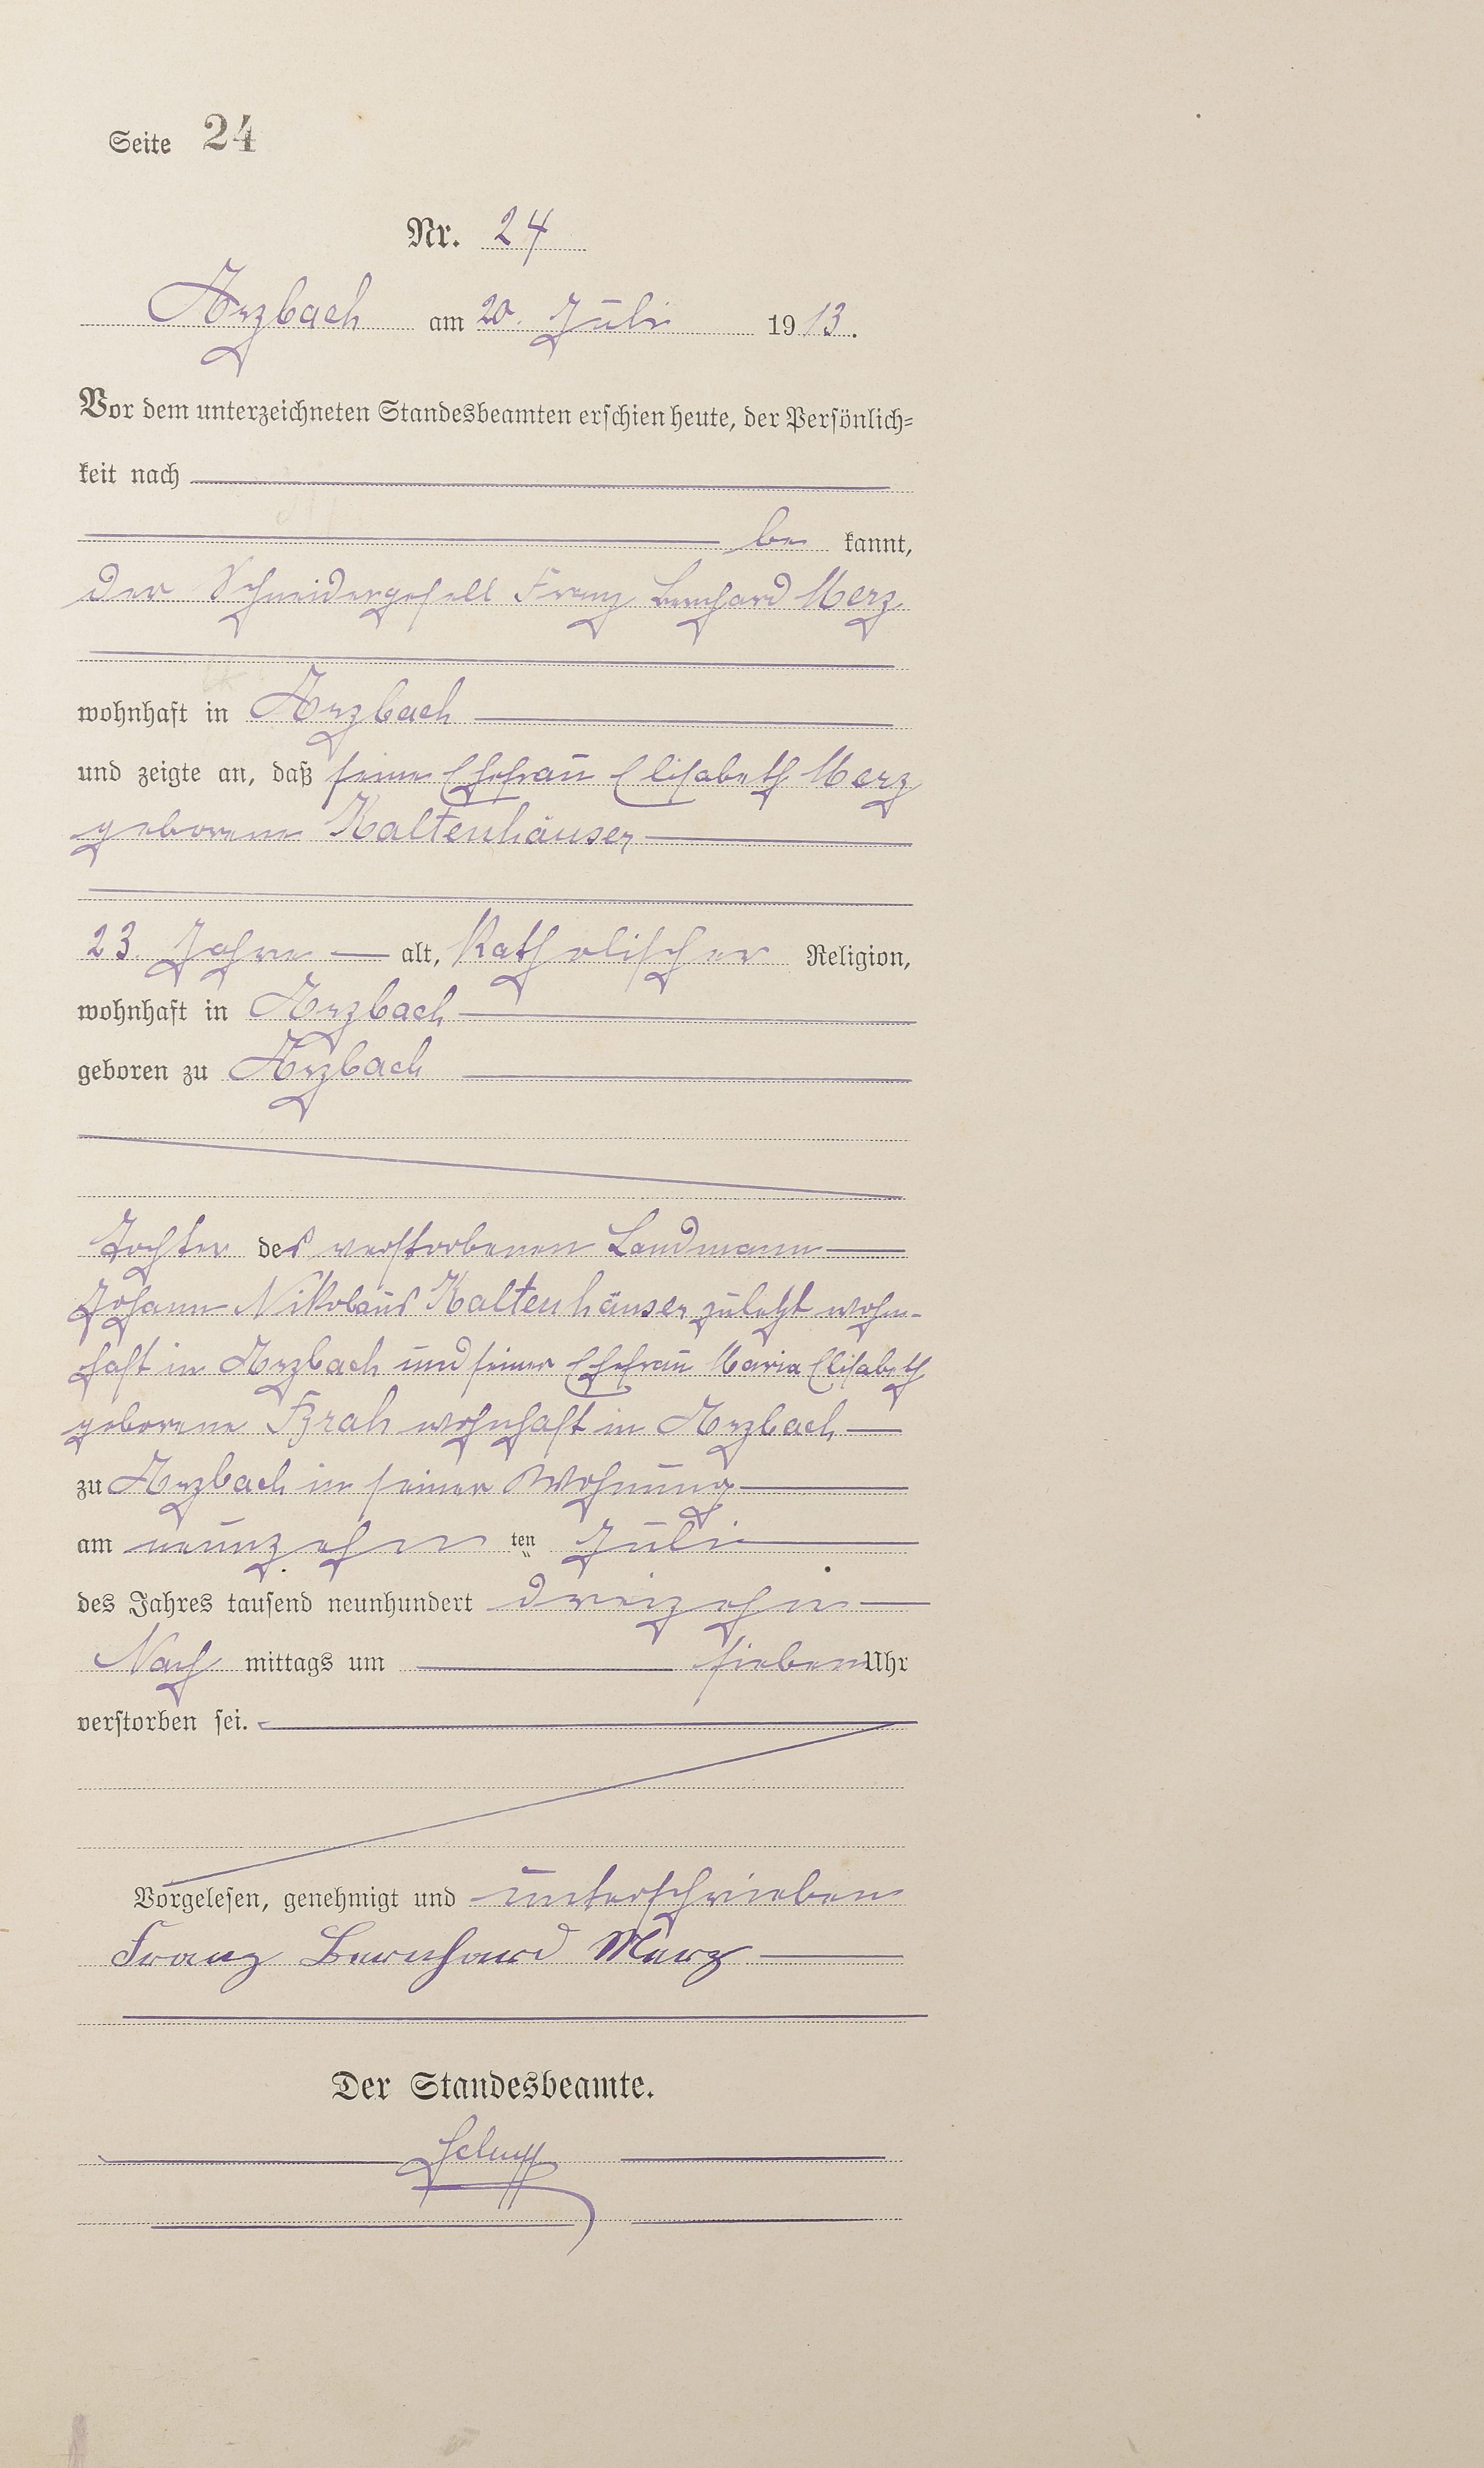 Seite 24
Nr. 24
Arzbach am 20. Juli 1913.
Vor dem unterzeichneten Standesbeamten erschien heute, der Persönlich=
keit nach
be kannt,
der Schneidergesell Franz Bernhard Merz
wohnhaft in Arzbach
und zeigte an, daß seine Ehefrau Elisabeth Merz
geborene Kaltenhäuser
23. Jahre alt, Katholischer Religion,
wohnhaft in Arzbach
geboren zu Arzbach
Tochter des verstorbenen Landmann
Johann Nikolaus Kaltenhäuser zuletzt wohn-
haft in Arzbach und seiner Ehefrau Maria Elisabeth
geborene wohnhaft in Arzbach
zu Arzbach in seiner Wohnung
am neunzehn ten Juli
des Jahres tausend neunhundert dreizehn
Nach mittags um sieben Uhr
verstorben sei.
Vorgelesen, genehmigt und unterschrieben
Franz Bernhard Merz
Der Standesbeamte.